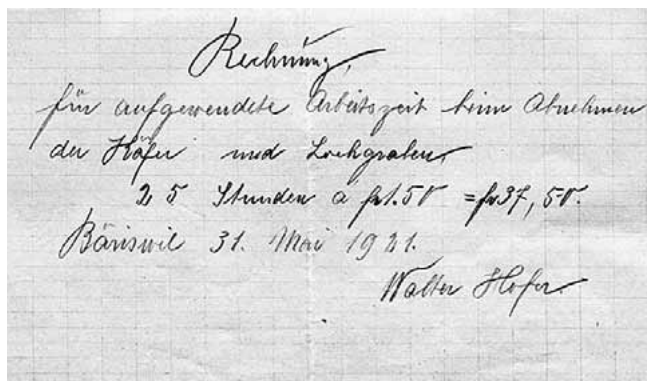 Rechnung,
für aufgewendete Arbeitszeit beim Abnehmen
der Käfer und Lochgraben,
25 Stunden à fr 1.50 = fr 37,50.
Bäriswil 31. Mai 1921.
Walter Hofer.